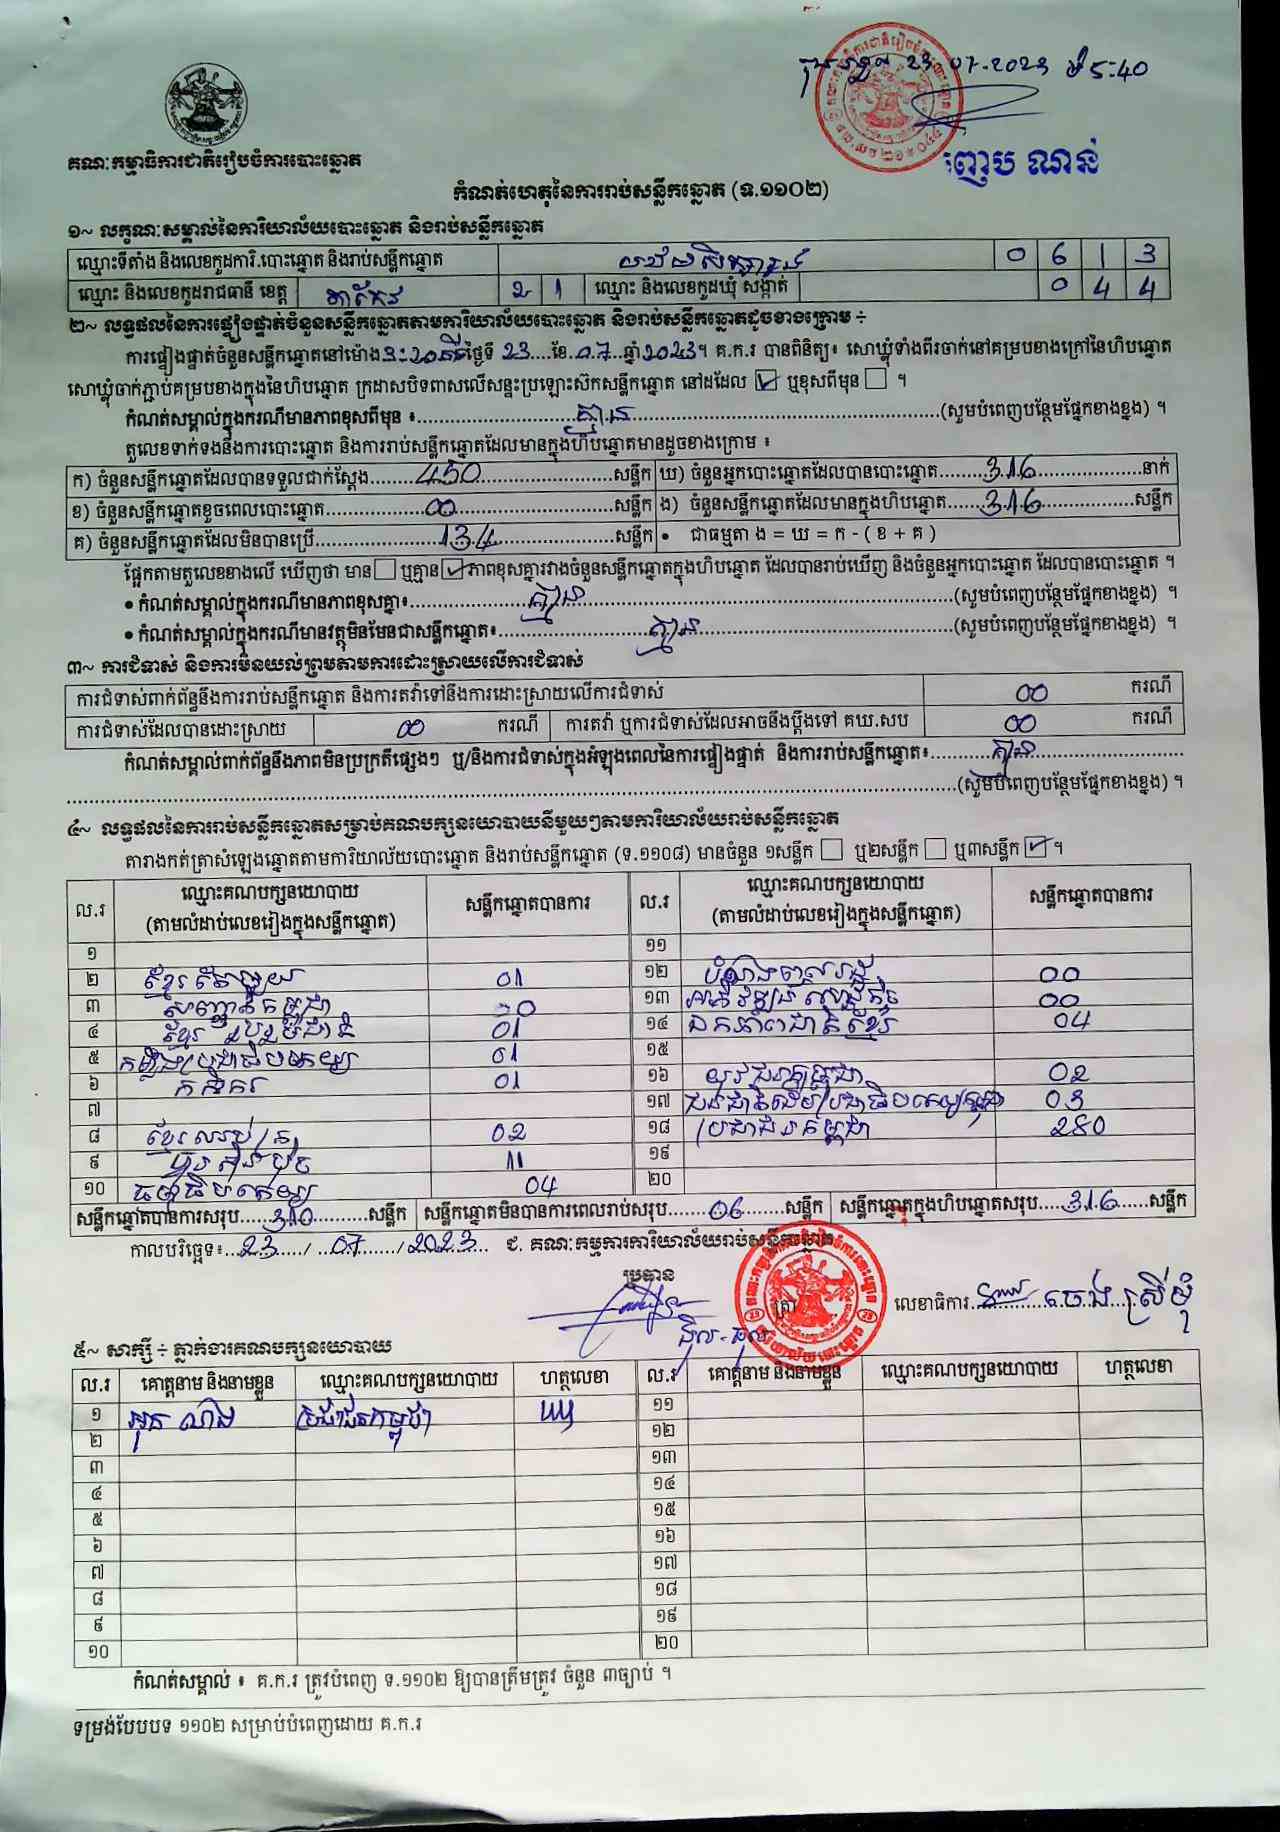 23.07.2023 ម៉ 5:40
ញ៉េប ណន់
គណៈកម្មាធិការជាតិរៀបចំការបោះឆ្នោត
កំណត់ហេតុនៃការរាប់សន្លឹកឆ្នោត (ទ.១១០២)
១~ លក្ខណៈសម្គាល់នៃការិយាល័យបោះឆ្នោត និងរាប់សន្លឹកឆ្នោត
ឈ្មោះទីតាំង និងលេខកូដការិ.បោះឆ្នោត និងរាប់សន្លឹកឆ្នោត 0 6 1 3
ឈ្មោះ និងលេខកូដរាជធានី ខេត្ត តាកែវ 2 1 ឈ្មោះ និងលេខកូដឃុំ សង្កាត់ 0 4 4
២~ លទ្ធផលនៃការផ្ទៀងផ្ទាត់ចំនួនសន្លឹកឆ្នោតតាមការិយាល័យបោះឆ្នោត និងរាប់សន្លឹកឆ្នោតដូចខាងក្រោម ÷
ការផ្ទៀងផ្ទាត់ចំនួនសន្លឹកឆ្នោតនៅម៉ោង 3:20 ថ្ងៃទី 23 ខែ 07 ឆ្នាំ 2023 ។ គ.ក.រ បានពិនិត្យ៖ សោឃ្លុំទាំងពីរចាក់នៅគម្របខាងក្រៅនៃហិបឆ្នោត
សោឃ្លុំចាក់ភ្ជាប់គម្របខាងក្នុងនៃហិបឆ្នោត ក្រដាសបិទពាសលើសន្ទះប្រឡោះស៊កសន្លឹកឆ្នោត នៅដដែល ✓ ឬខុសពីមុន ។
កំណត់សម្គាល់ក្នុងករណីមានភាពខុសពីមុន ៖ គ្មាន (សូមបំពេញបន្ថែមផ្នែកខាងខ្នង) ។
តួលេខទាក់ទងនឹងការបោះឆ្នោត និងការរាប់សន្លឹកឆ្នោតដែលមានក្នុងហិបឆ្នោតមានដូចខាងក្រោម ៖
ក) ចំនួនសន្លឹកឆ្នោតដែលបានទទួលជាក់ស្តែង 450 សន្លឹក ឃ) ចំនួនអ្នកបោះឆ្នោតដែលបានបោះឆ្នោត 316 នាក់
ខ) ចំនួនសន្លឹកឆ្នោតខូចពេលបោះឆ្នោត 00 សន្លឹក ង) ចំនួនសន្លឹកឆ្នោតដែលមានក្នុងហិបឆ្នោត 316 សន្លឹក
គ) ចំនួនសន្លឹកឆ្នោតដែលមិនបានប្រើ 134 សន្លឹក • ជាធម្មតា ង = ឃ = ក - ( ខ + គ )
ផ្អែកតាមតួលេខខាងលើ ឃើញថា មាន ឬគ្មាន ✓ ភាពខុសគ្នារវាងចំនួនសន្លឹកឆ្នោតក្នុងហិបឆ្នោត ដែលបានរាប់ឃើញ និងចំនួនអ្នកបោះឆ្នោត ដែលបានបោះឆ្នោត ។
• កំណត់សម្គាល់ក្នុងករណីមានភាពខុសគ្នា៖ គ្មាន (សូមបំពេញបន្ថែមផ្នែកខាងខ្នង) ។
• កំណត់សម្គាល់ក្នុងករណីមានវត្ថុមិនមែនជាសន្លឹកឆ្នោត៖ គ្មាន (សូមបំពេញបន្ថែមផ្នែកខាងខ្នង) ។
៣~ ការជំទាស់ និងការមិនយល់ព្រមតាមការដោះស្រាយលើការជំទាស់
ការជំទាស់ពាក់ព័ន្ធនឹងការរាប់សន្លឹកឆ្នោត និងការតវ៉ាទៅនឹងការដោះស្រាយលើការជំទាស់ 00 ករណី
ការជំទាស់ដែលបានដោះស្រាយ 00 ករណី ការតវ៉ា ឬការជំទាស់ដែលអាចនឹងប្តឹងទៅ គឃ.សប 00 ករណី
កំណត់សម្គាល់ពាក់ព័ន្ធនឹងភាពមិនប្រក្រតីផ្សេងៗ ឬ/និងការជំទាស់ក្នុងអំឡុងពេលនៃការផ្ទៀងផ្ទាត់ និងការរាប់សន្លឹកឆ្នោត៖ គ្មាន
(សូមបំពេញបន្ថែមផ្នែកខាងខ្នង) ។
៤~ លទ្ធផលនៃការរាប់សន្លឹកឆ្នោតសម្រាប់គណបក្សនយោបាយនីមួយៗតាមការិយាល័យរាប់សន្លឹកឆ្នោត
តារាងកត់ត្រាសំឡេងឆ្នោតតាមការិយាល័យបោះឆ្នោត និងរាប់សន្លឹកឆ្នោត (ទ.១១០៨) មានចំនួន ១សន្លឹក ឬ២សន្លឹក ឬ៣សន្លឹក ✓ ។
ល.រ ឈ្មោះគណបក្សនយោបាយ (តាមលំដាប់លេខរៀងក្នុងសន្លឹកឆ្នោត) សន្លឹកឆ្នោតបានការ ល.រ ឈ្មោះគណបក្សនយោបាយ (តាមលំដាប់លេខរៀងក្នុងសន្លឹកឆ្នោត) សន្លឹកឆ្នោតបានការ
១ ១១
២ ខ្មែរតែមួយ 01 ១២ 00
៣ 00 ១៣ 00
៤ ខ្មែររួបរួមជាតិ 01 ១៤ ឯកភាពជាតិខ្មែរ 04
៥ កម្លាំងប្រជាធិបតេយ្យ 01 ១៥
៦ កសិករ 01 ១៦ យុវជនកម្ពុជា 02
៧ ១៧ 03
៨ 02 ១៨ ប្រជាជនកម្ពុជា 280
៩ ហ្វ៊ុនស៊ិនប៉ិច 11 ១៩
១០ ធម្មាធិបតេយ្យ 04 ២០
សន្លឹកឆ្នោតបានការសរុប 310 សន្លឹក សន្លឹកឆ្នោតមិនបានការពេលរាប់សរុប 06 សន្លឹក សន្លឹកឆ្នោតក្នុងហិបឆ្នោតសរុប 316 សន្លឹក
កាលបរិច្ឆេទ៖ 23 / 07 / 2023 ជ. គណៈកម្មការការិយាល័យរាប់សន្លឹកឆ្នោត
ប្រធាន ត្រា លេខាធិការ ចេង ស្រីមុំ
៥~ សាក្សី ÷ ភ្នាក់ងារគណបក្សនយោបាយ
ល.រ គោត្តនាម និងនាមខ្លួន ឈ្មោះគណបក្សនយោបាយ ហត្ថលេខា ល.រ គោត្តនាម និងនាមខ្លួន ឈ្មោះគណបក្សនយោបាយ ហត្ថលេខា
១ ប្រជាជនកម្ពុជា ១១
២ ១២
៣ ១៣
៤ ១៤
៥ ១៥
៦ ១៦
៧ ១៧
៨ ១៨
៩ ១៩
១០ ២០
កំណត់សម្គាល់ ៖ គ.ក.រ ត្រូវបំពេញ ទ.១១០២ ឱ្យបានត្រឹមត្រូវ ចំនួន ៣ច្បាប់ ។
ទម្រង់បែបបទ ១១០២ សម្រាប់បំពេញដោយ គ.ក.រ